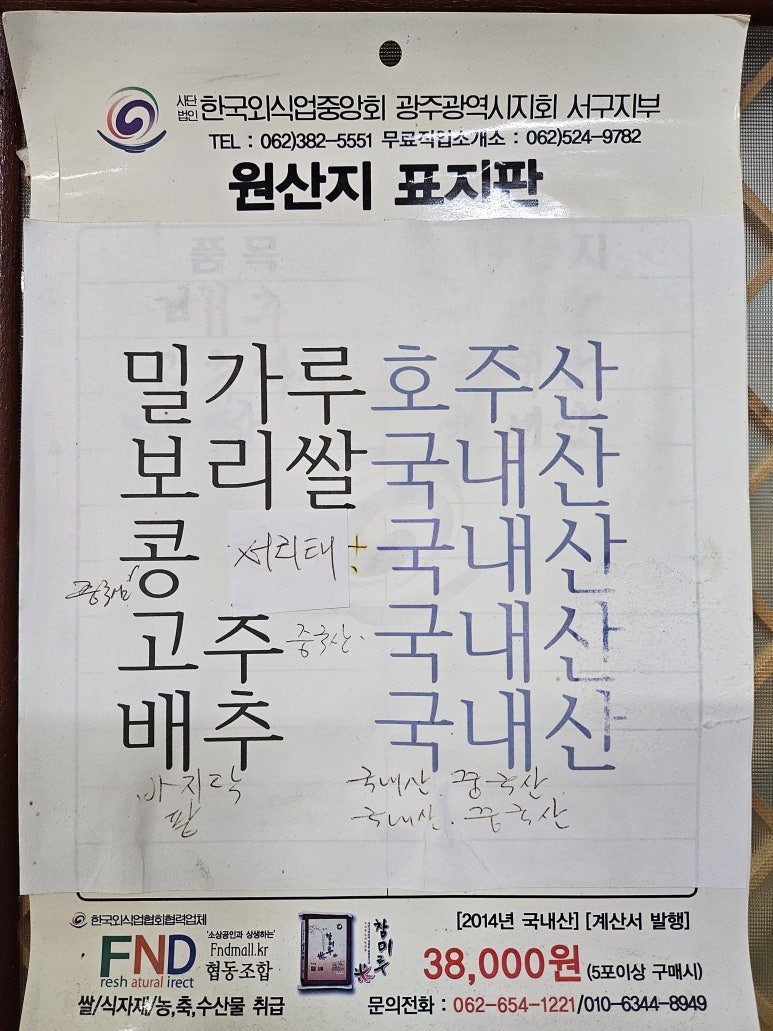 사단법인 한국외식업중앙회 광주광역시지회 서구지부
TEL : 062)382-5551 무료직업소개소 : 062)524-9782
원산지 표지판
품목 지
배추
밀가루 호주산
보리쌀 국내산
콩 서리태 국내산
중국산
고주 중국산. 국내산
배추 국내산
바지락 국내산 중국산
팥 국내산. 중국산
한국외식업협회협력업체
'소상공인과 상생하는' [2014년 국내산] [계산서 발행]
FND Fndmall.kr 참미루
resh atural irect 협동조합 38,000원 (5포이상 구매시)
쌀/식자재/농,축,수산물 취급 문의전화 : 062-654-1221/010-6344-8949